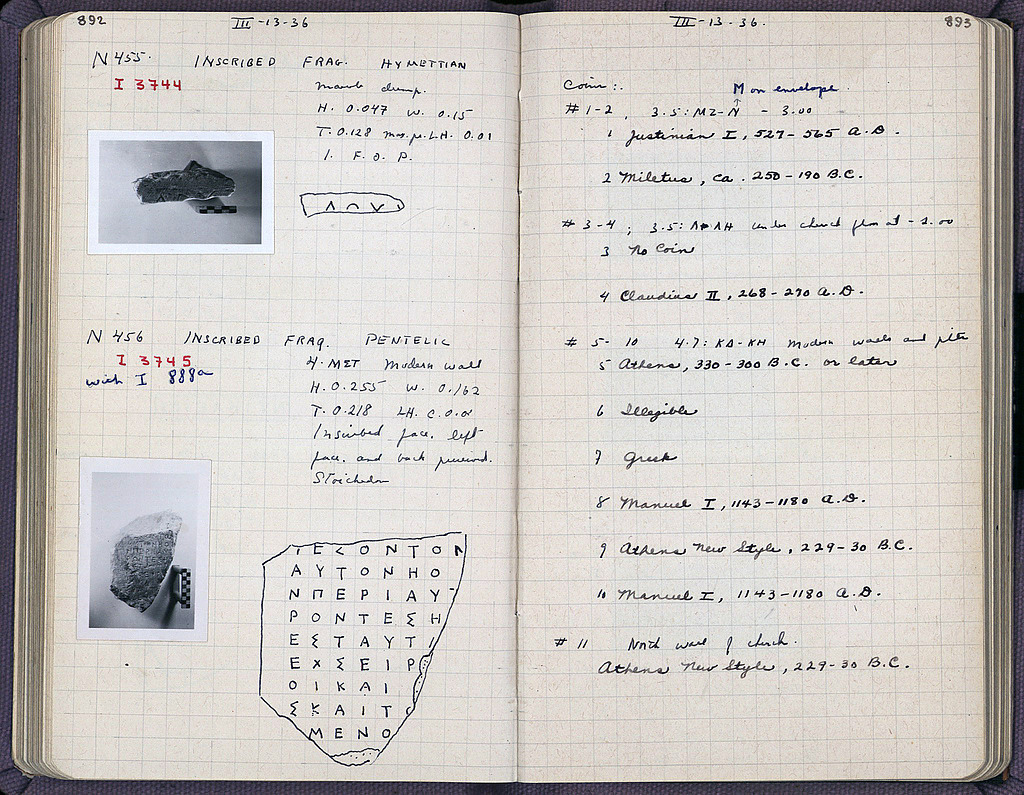 892
III-13-36
N 455. INSCRIBED FRAG. HYMETTIAN
I 3744
Marble dump.
H. 0.047 W. 0.15
T. 0.128 L.H. 0.01
1. F. O. P.
N 456 INSCRIBED FRAG. PENTELIC
I 3745
with I 888a
4. MET Modern wall
H. 0.255 W. 0.162
T. 0.218 LH. C. 0.01
Inscribed face, left
face, and back preserved.
Stoichedon
ΕΣΟΝΤΟΝ
ΑΥΤΟΝΗΟ
ΝΠΕΡΙΑΥ
ΡΟΝΤΕΣΗ
ΕΣΤΑΥΤΙ
ΕΧΣΕΙΡ
ΟΙΚΑΙ
ΣΚΑΙΤ
ΜΕΝΟ
III-13-36.
893
Coins:
M on envelope.
#1-2, 3.5: MZ-N - 3.00
1 Justinian I, 527-565 A.D.
2 Miletus, ca. 250-190 B.C.
#3-4; 3.5: ΛΗ under church floor at -2.00
3 No Coin
4 Claudius II, 268-270 A.D.
#5-10 4.7: KΔ-KH Modern walls and pits
5 Athens, 330-300 B.C. or later
6 Illegible
7 Greek
8 Manuel I, 1143-1180 A.D.
9 Athens New Style, 229-30 B.C.
10 Manuel I, 1143-1180 A.D.
#11 North wall of church.
Athens New Style, 229-30 B.C.